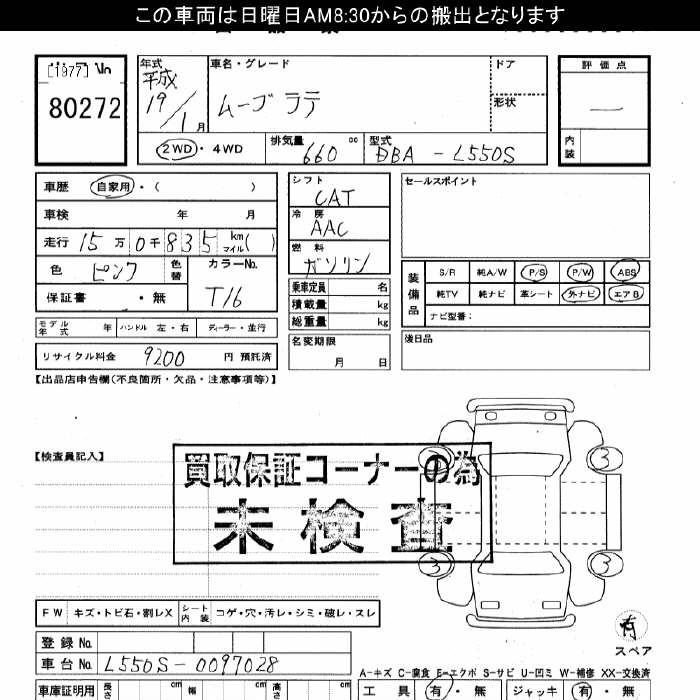 この車両は日曜日AM8:30からの搬出となります
[1977] Vn
80272
年式
平成
19/1月
車名・グレード
ムーヴ ラテ
ドア
形状
2WD・4WD
排気量
660 cc
型式
DBA - L550S
評価点
—
内装
車歴 自家用・( )
車検 年 月
走行 15万0千835 km マイル( )
色 ピンク 色替
カラーNo.
T16
保証書 ・無
モデル年式 年 ハンドル 左・右 ディーラー・並行
リサイクル料金 9200 円 預託済
シフト
CAT
冷房
AAC
燃料
ガソリン
乗車定員 名
積載量 kg
総重量 kg
名変期限
月 日
セールスポイント
装備品
S/R 純A/W P/S P/W ABS
純TV 純ナビ 革シート 外ナビ エアB
ナビ型番:
後日品
【出品店申告欄(不良箇所・欠品・注意事項等)】
【検査員記入】
買取保証コーナーの為
未検査
3 3
3 3
有
スペア
FW キズ・トビ石・割レX シート内装 コゲ・穴・汚レ・シミ・破レ・スレ
登録No.
車台No. L550S-0097028
A-キズ C-腐食 E-エクボ S-サビ U-凹ミ W-補修 XX-交換済
車庫証明用 長さ cm 幅 cm 高さ cm
工具 有・無 ジャッキ 有・無